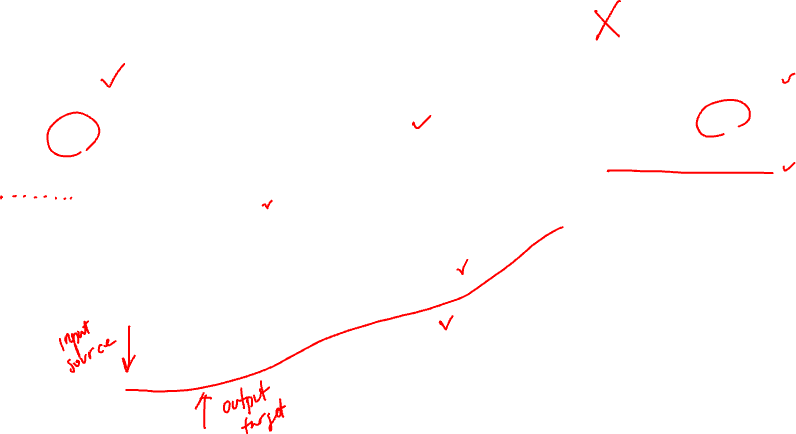 input
source
output
target